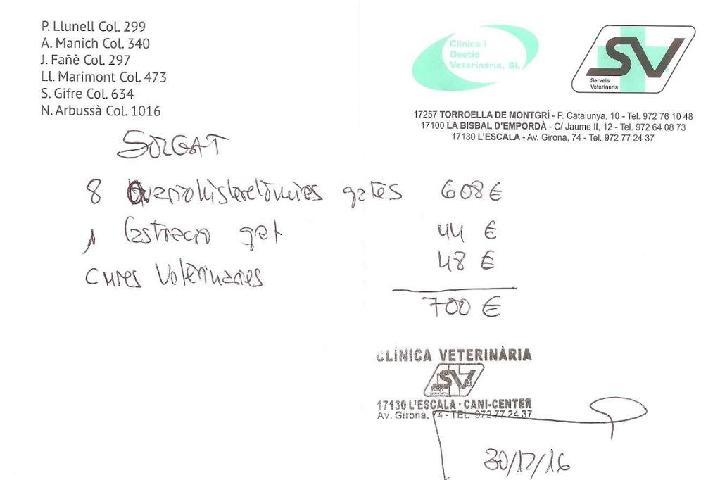 P. Llunell Col. 299
A. Manich Col. 340
J. Fañè Col. 297
Ll. Marimont Col. 473
S. Gifre Col. 634
N. Arbussà Col. 1016
Clínica i
Gestió
Veterinària, SL
SV
Serveis
Veterinaris
17257 TORROELLA DE MONTGRÍ - P. Catalunya, 10 - Tel. 972 76 10 48
17100 LA BISBAL D'EMPORDÀ - C/ Jaume II, 12 - Tel. 972 64 08 73
17130 L'ESCALA - Av. Girona, 74 - Tel. 972 77 24 37
SOLGAT
8 Ovariohisterectòmies gates 608 €
1 Castracio gat 44 €
Cures Veterinaries 48 €
700 €
CLÍNICA VETERINÀRIA
SV
17130 L'ESCALA - CANI-CENTER
Av. Girona, 74 - TEL. 972 77 24 37
30/12/16